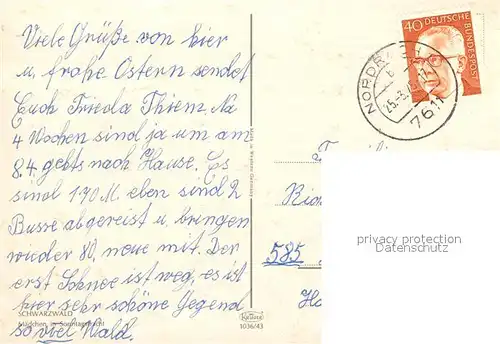 Viele Grüße von hier
u. frohe Ostern sendet
Euch Frieda Thienz. Na
4 Wochen sind ja um am
8.4. gehts nach Hause. Es
sind 170 M. eben sind 2
Busse abgereist u. bringen
wieder 80, neue mit. Der
erst Schnee ist weg, es ist
hier sehr schöne Gegend
so viel Wald.
SCHWARZWALD
Mädchen in
1036/43
Krüger
40 DEUTSCHE BUNDESPOST
NORDRACH
25.-3.
7611
585
privacy protection
Datenschutz